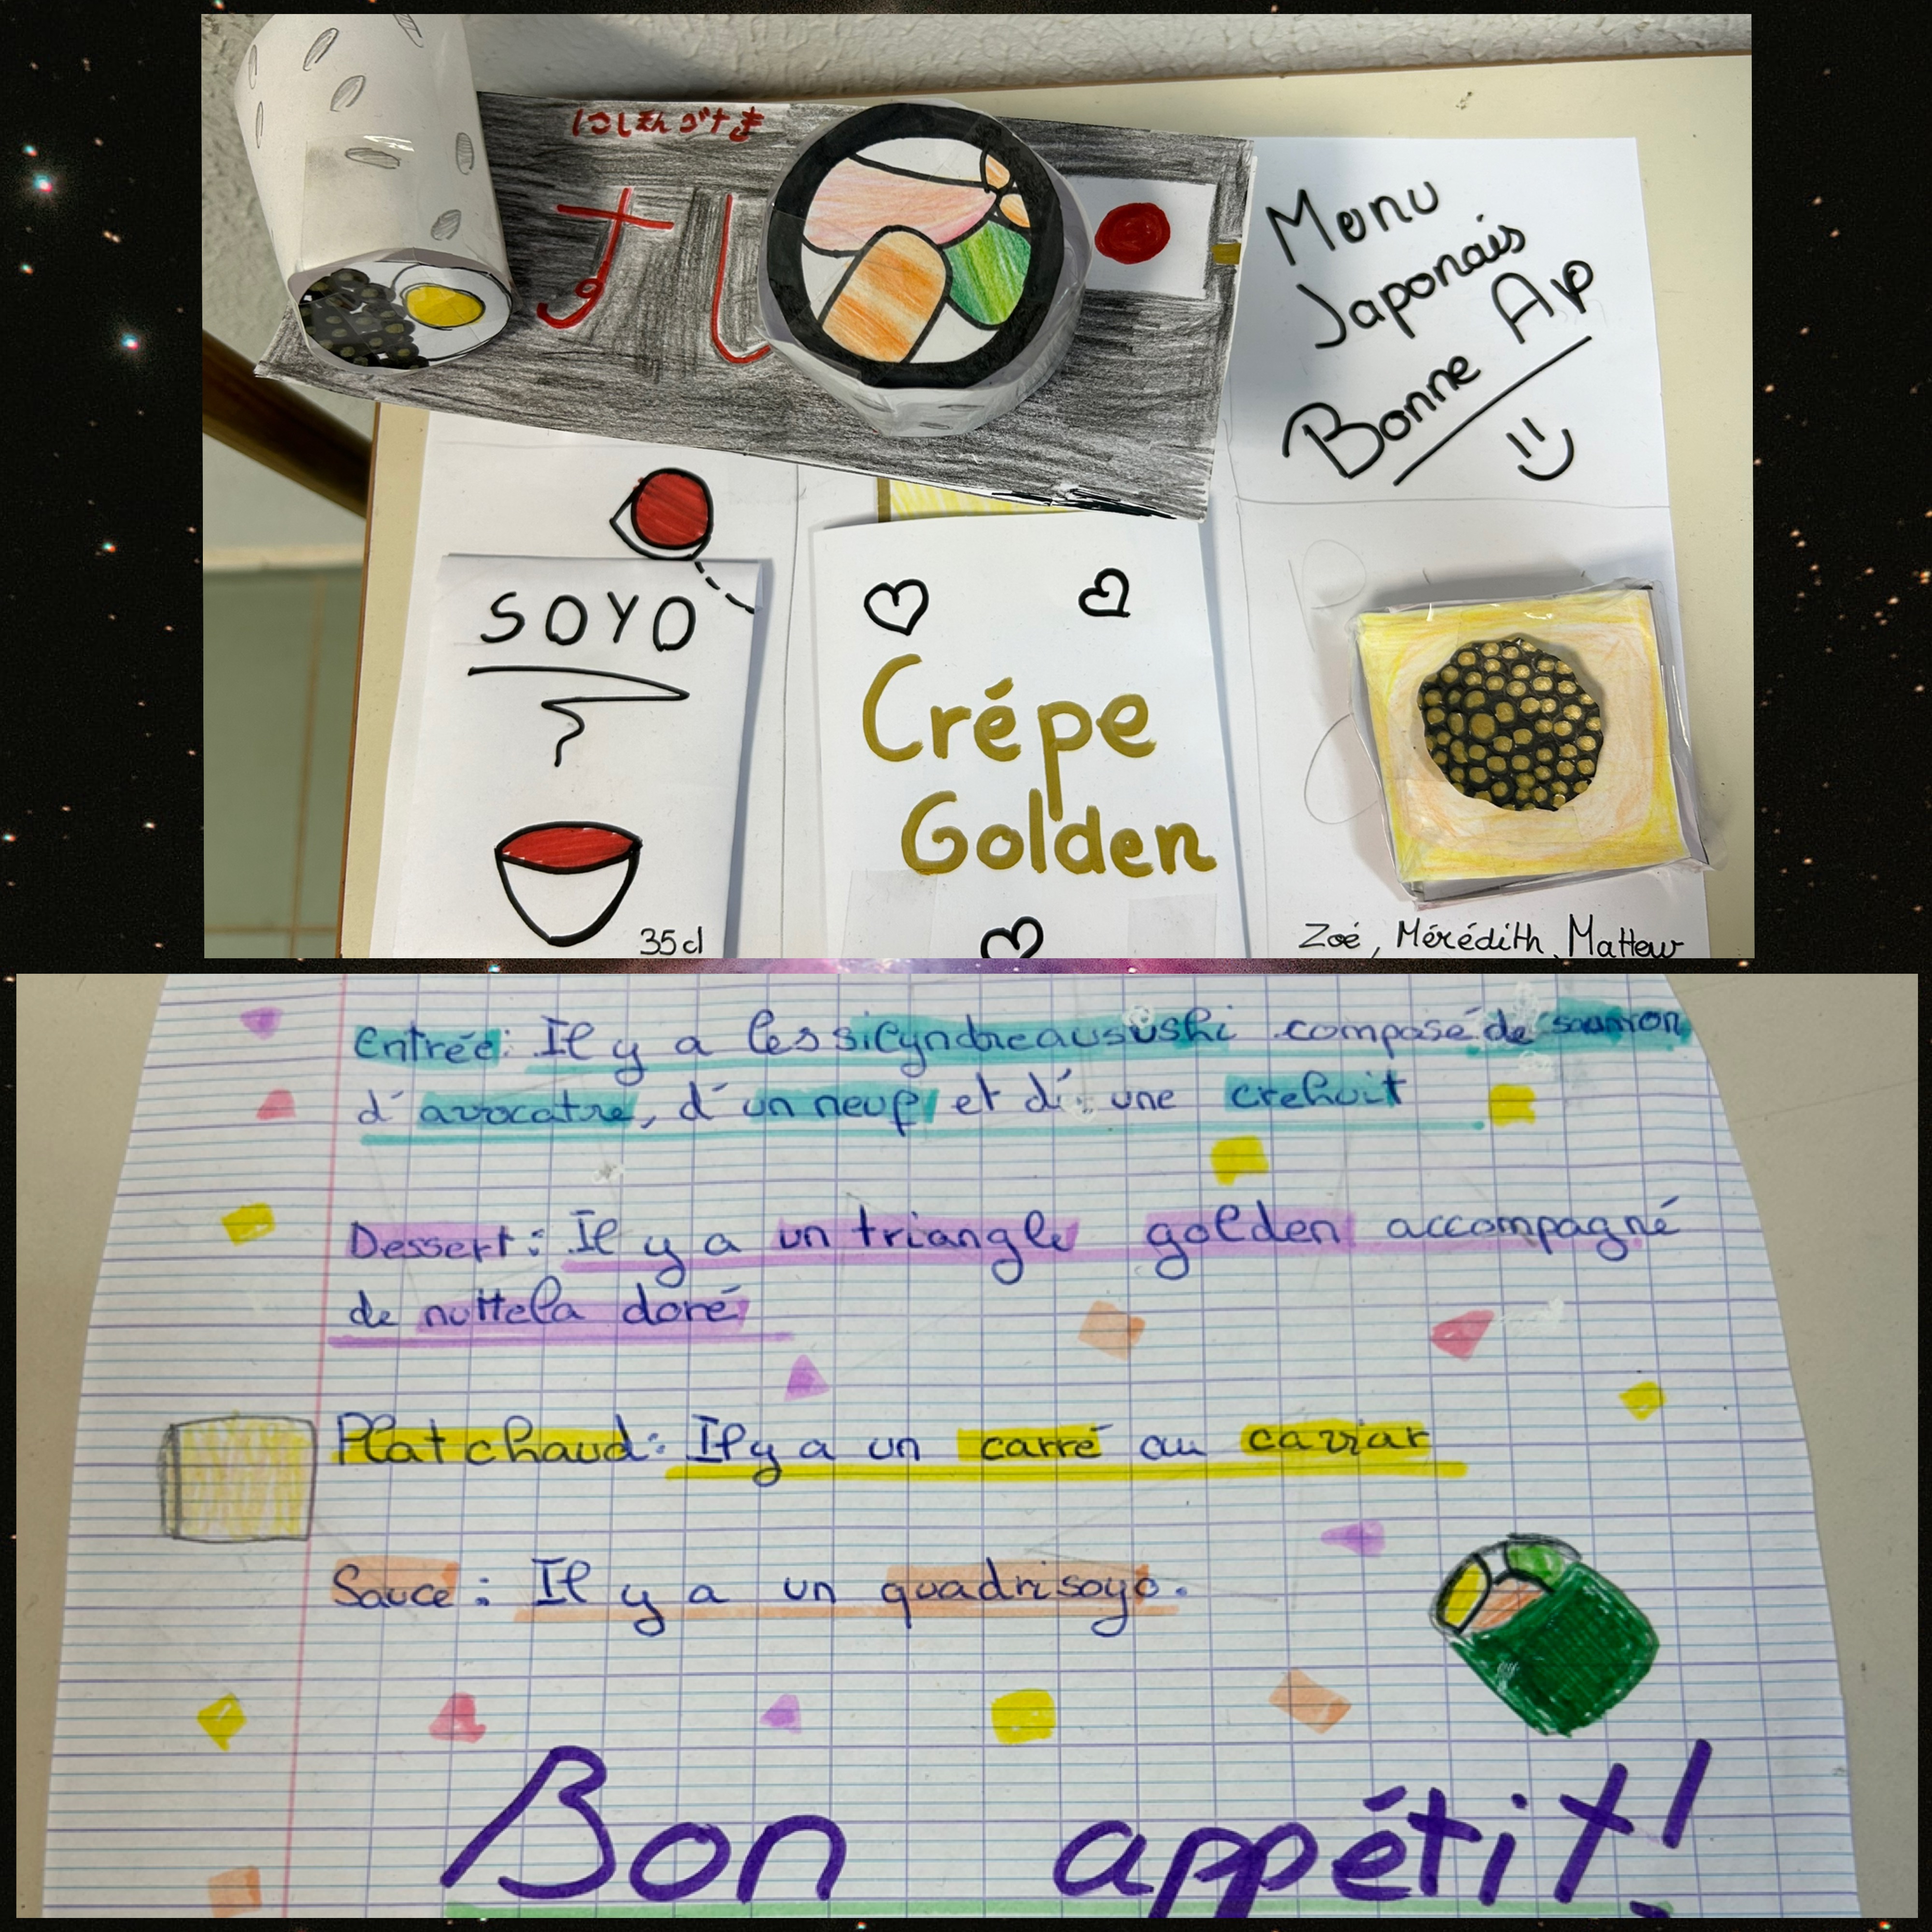 にほんづすき
すし
Menu
Japonais
Bonne Ap
SOYO
35cl
Crépe
Golden
Zoé, Mérédith, Mattew
Entrée: Il y a les sicyndreausushi composé de saumon
d'avocatre, d'un neuf et d' une crehuit
Dessert: Il y a un triangle golden accompagné
de nuttela doré
Plat chaud: Il y a un carré au caviar
Sauce: Il y a un quadrisoyo.
Bon appétit!